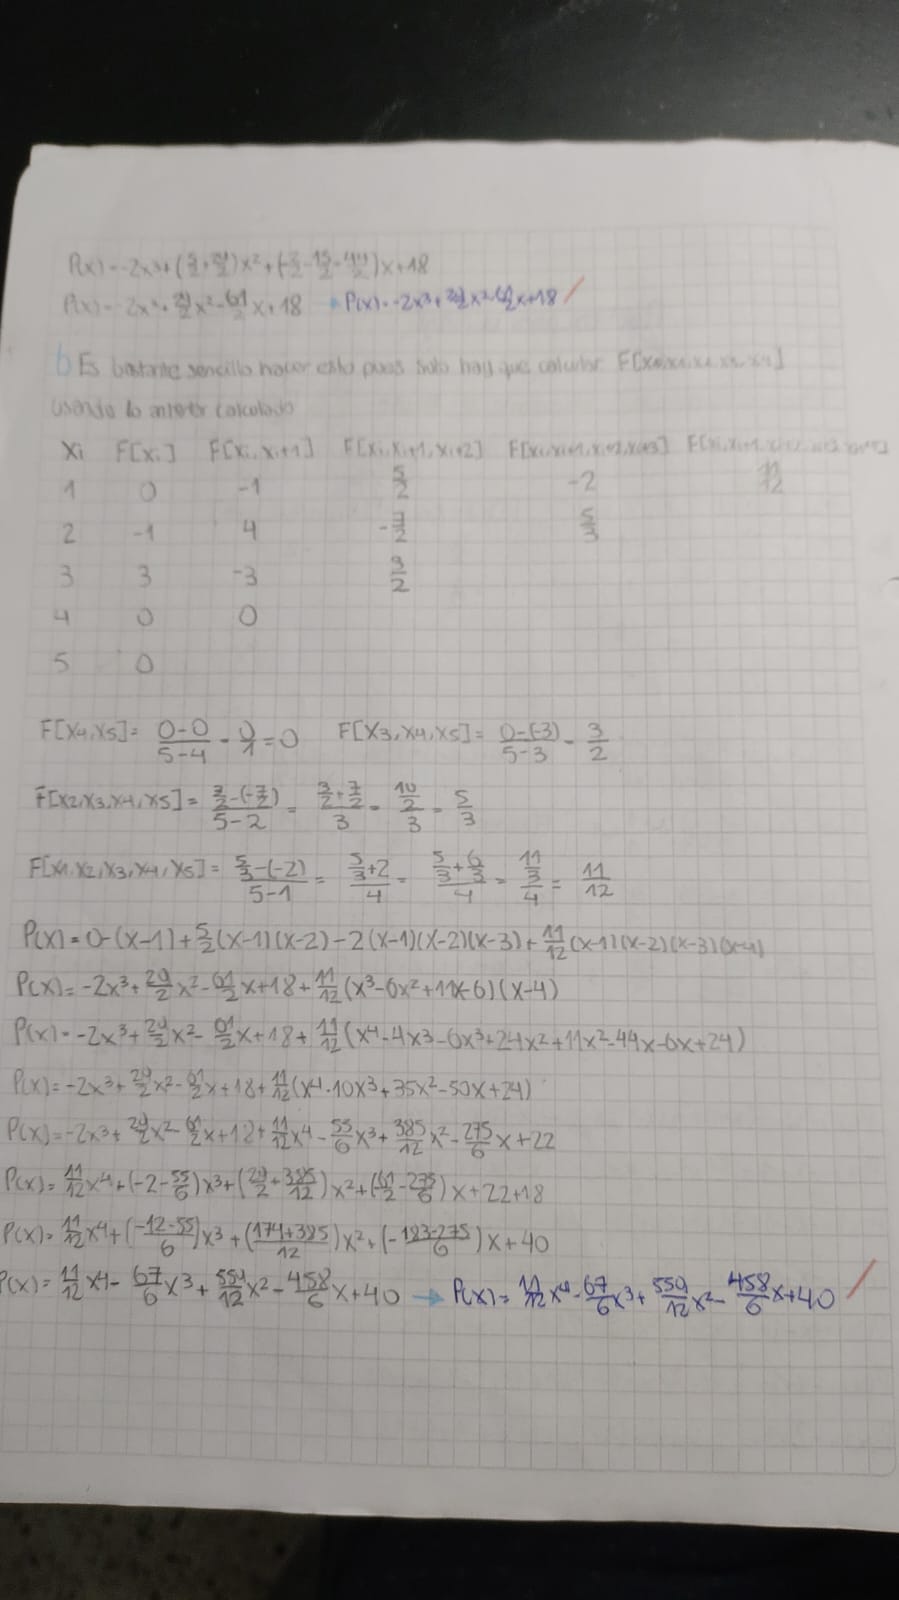 P(x)=-2x³+(5/2+24/2)x²+(-2/2-15/2-44/2)x+18
P(x)=-2x³+29/2x²-61/2x+18 → P(x)=-2x³+29/2x²-61/2x+18
b Es bastante sencillo hacer esto pues solo hay que calcular F[x1,x2,x3,x4,x5]
usando lo anterior calculado
Xi F[xi] F[xi,xi+1] F[xi,xi+1,xi+2] F[xi,xi+1,xi+2,xi+3] F[xi,xi+1,xi+2,xi+3,xi+4]
1 0 -1 5/2 -2 11/12
2 -1 4 -7/2 5/3
3 3 -3 3/2
4 0 0
5 0
F[x4,x5]= 0-0/5-4 = 0/1 =0 F[x3,x4,x5]= 0-(-3)/5-3 = 3/2
F[x2,x3,x4,x5]= 3/2-(-7/2)/5-2 = 3/2+7/2/3 = 10/2/3 = 5/3
F[x1,x2,x3,x4,x5]= 5/3-(-2)/5-1 = 5/3+2/4 = 5/3+6/3/4 = 11/3/4 = 11/12
P(x)=0-(x-1)+5/2(x-1)(x-2)-2(x-1)(x-2)(x-3)+11/12(x-1)(x-2)(x-3)(x-4)
P(x)=-2x³+29/2x²-61/2x+18+11/12(x³-6x²+11x-6)(x-4)
P(x)=-2x³+29/2x²-61/2x+18+11/12(x⁴-4x³-6x³+24x²+11x²-44x-6x+24)
P(x)=-2x³+29/2x²-61/2x+18+11/12(x⁴-10x³+35x²-50x+24)
P(x)=-2x³+29/2x²-61/2x+18+11/12x⁴-55/6x³+385/12x²-275/6x+22
P(x)=11/12x⁴+(-2-55/6)x³+(29/2+385/12)x²+(-61/2-275/6)x+22+18
P(x)=11/12x⁴+(-12-55/6)x³+(174+385/12)x²+(-183-275/6)x+40
P(x)=11/12x⁴-67/6x³+559/12x²-458/6x+40 → P(x)=11/12x⁴-67/6x³+559/12x²-458/6x+40